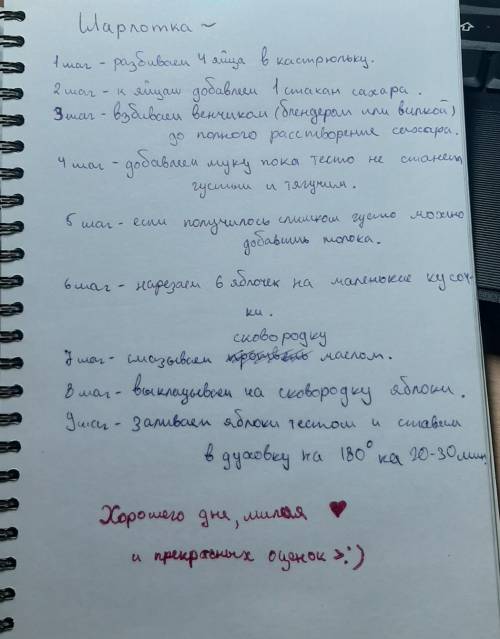 Шарлотка ~
1 шаг - разбиваем 4 яйца в кастрюльку.
2 шаг - к яйцам добавляем 1 стакан сахара.
3 шаг - взбиваем венчиком (блендером или вилкой)
до полного расстворение сахара.
4 шаг - добавляем муку пока тесто не станет
густым и тягучим.
5 шаг - если получилось слишком густо можно
добавить молока.
6 шаг - нарезаем 6 яблочек на маленькие кусоч-
ки.
сковородку
7 шаг - смазываем маслом.
8 шаг - выкладываем на сковородку яблоки.
9 шаг - заливаем яблоки тестом и ставим
в духовку на 180° на 20-30 мин.
Хорошего дня, милая ♥
и прекрасных оценок >:)